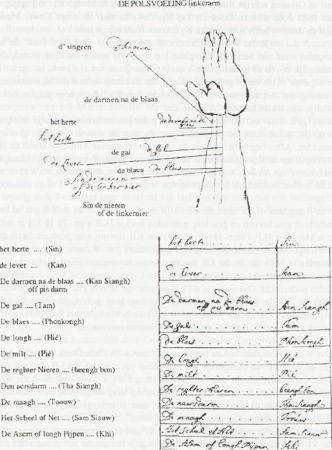 DE POLSVOELING linkerarm
d' singeen
de darmen na de blaas
het herte
het herte
de gal
de Gal
de Lever
de blaes
de blaes
Sin de nieren
of de linkernier
Sin de nieren
of de linkernier
het herte .... (Sin)
de lever .... (Kan)
De darmen na de blaas .... (Kan Siangh)
off pis darm
De gal .... (Tam)
De blaes .... (Phonkongh)
De longh .... (Hié)
De milt .... (Pié)
De reghter Nieren .... (beengh bon)
Den aersdarm .... (Tha Siangh)
De maagh .... (Toouw)
Het Scheel of Net .... (Sam Siauw)
De Asem of loogh Pijpen .... (Khi)
het herte .... Sin
de lever .... kan
De darmen na de blaes
off pis darm
De gal .... Tam
De blaes .... Phonkongh
De longh .... Hié
De milt .... Pié
De reghter Nieren
De maagh